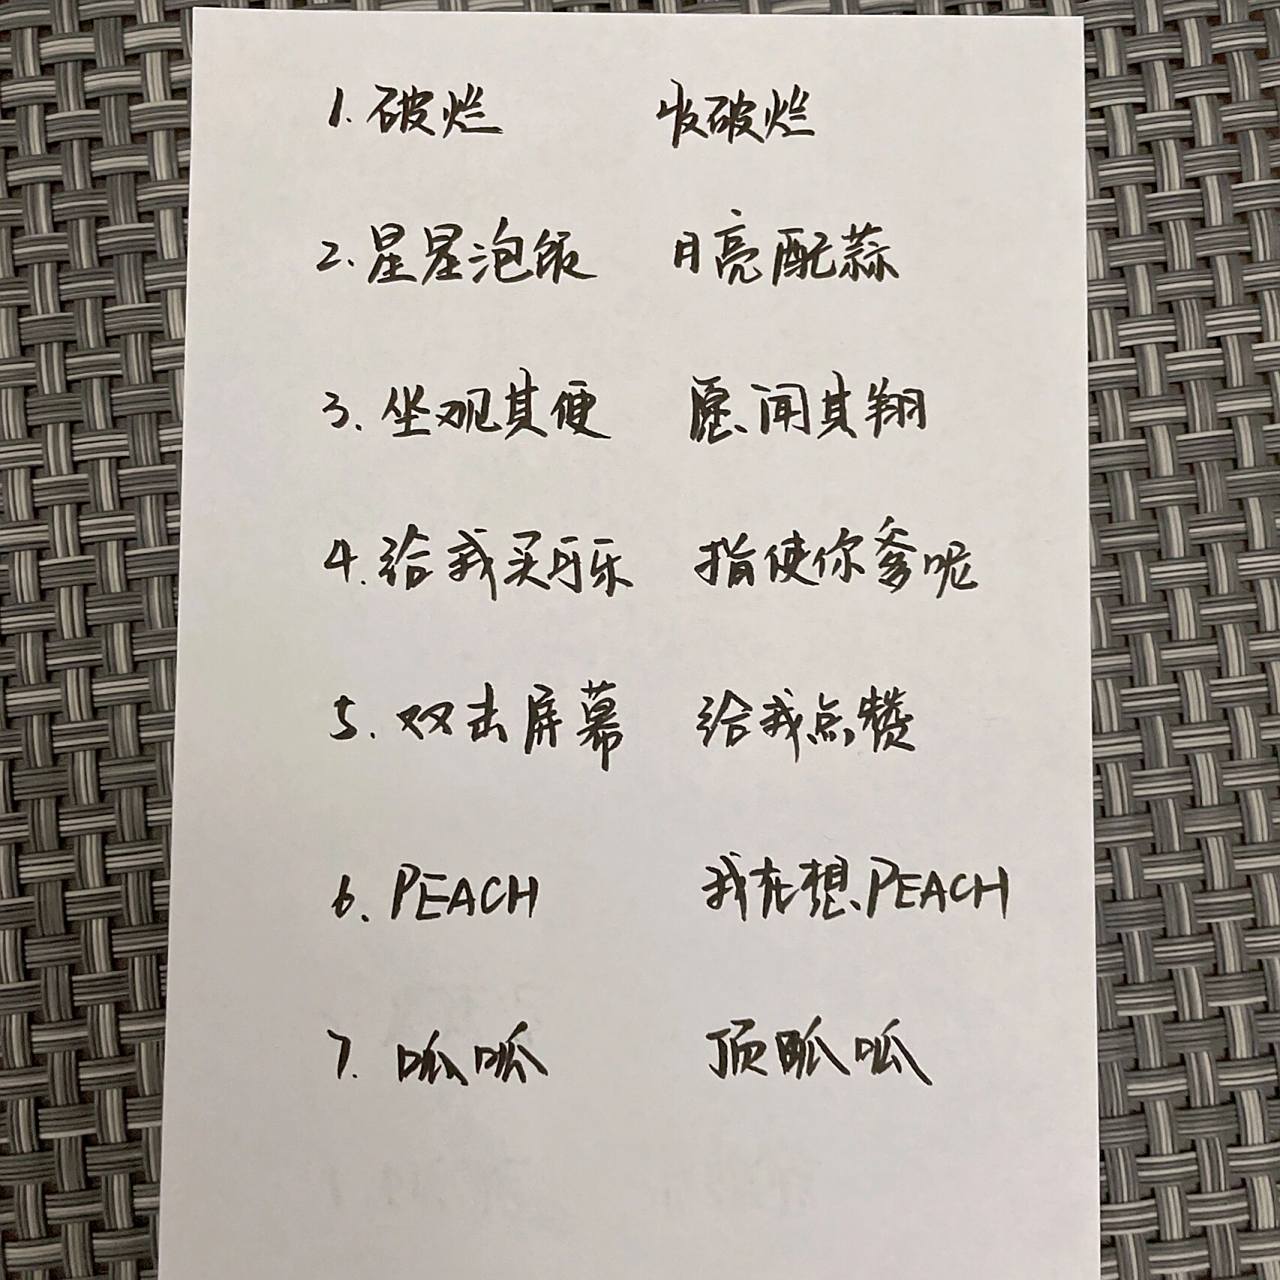 1. 破烂 收破烂
2. 星星泡饭 月亮配蒜
3. 坐观其便 愿闻其翔
4. 给我买牙乐 指使你爹呢
5. 双击屏幕 给我点赞
6. PEACH 我在想PEACH
7. 呱呱 顶呱呱